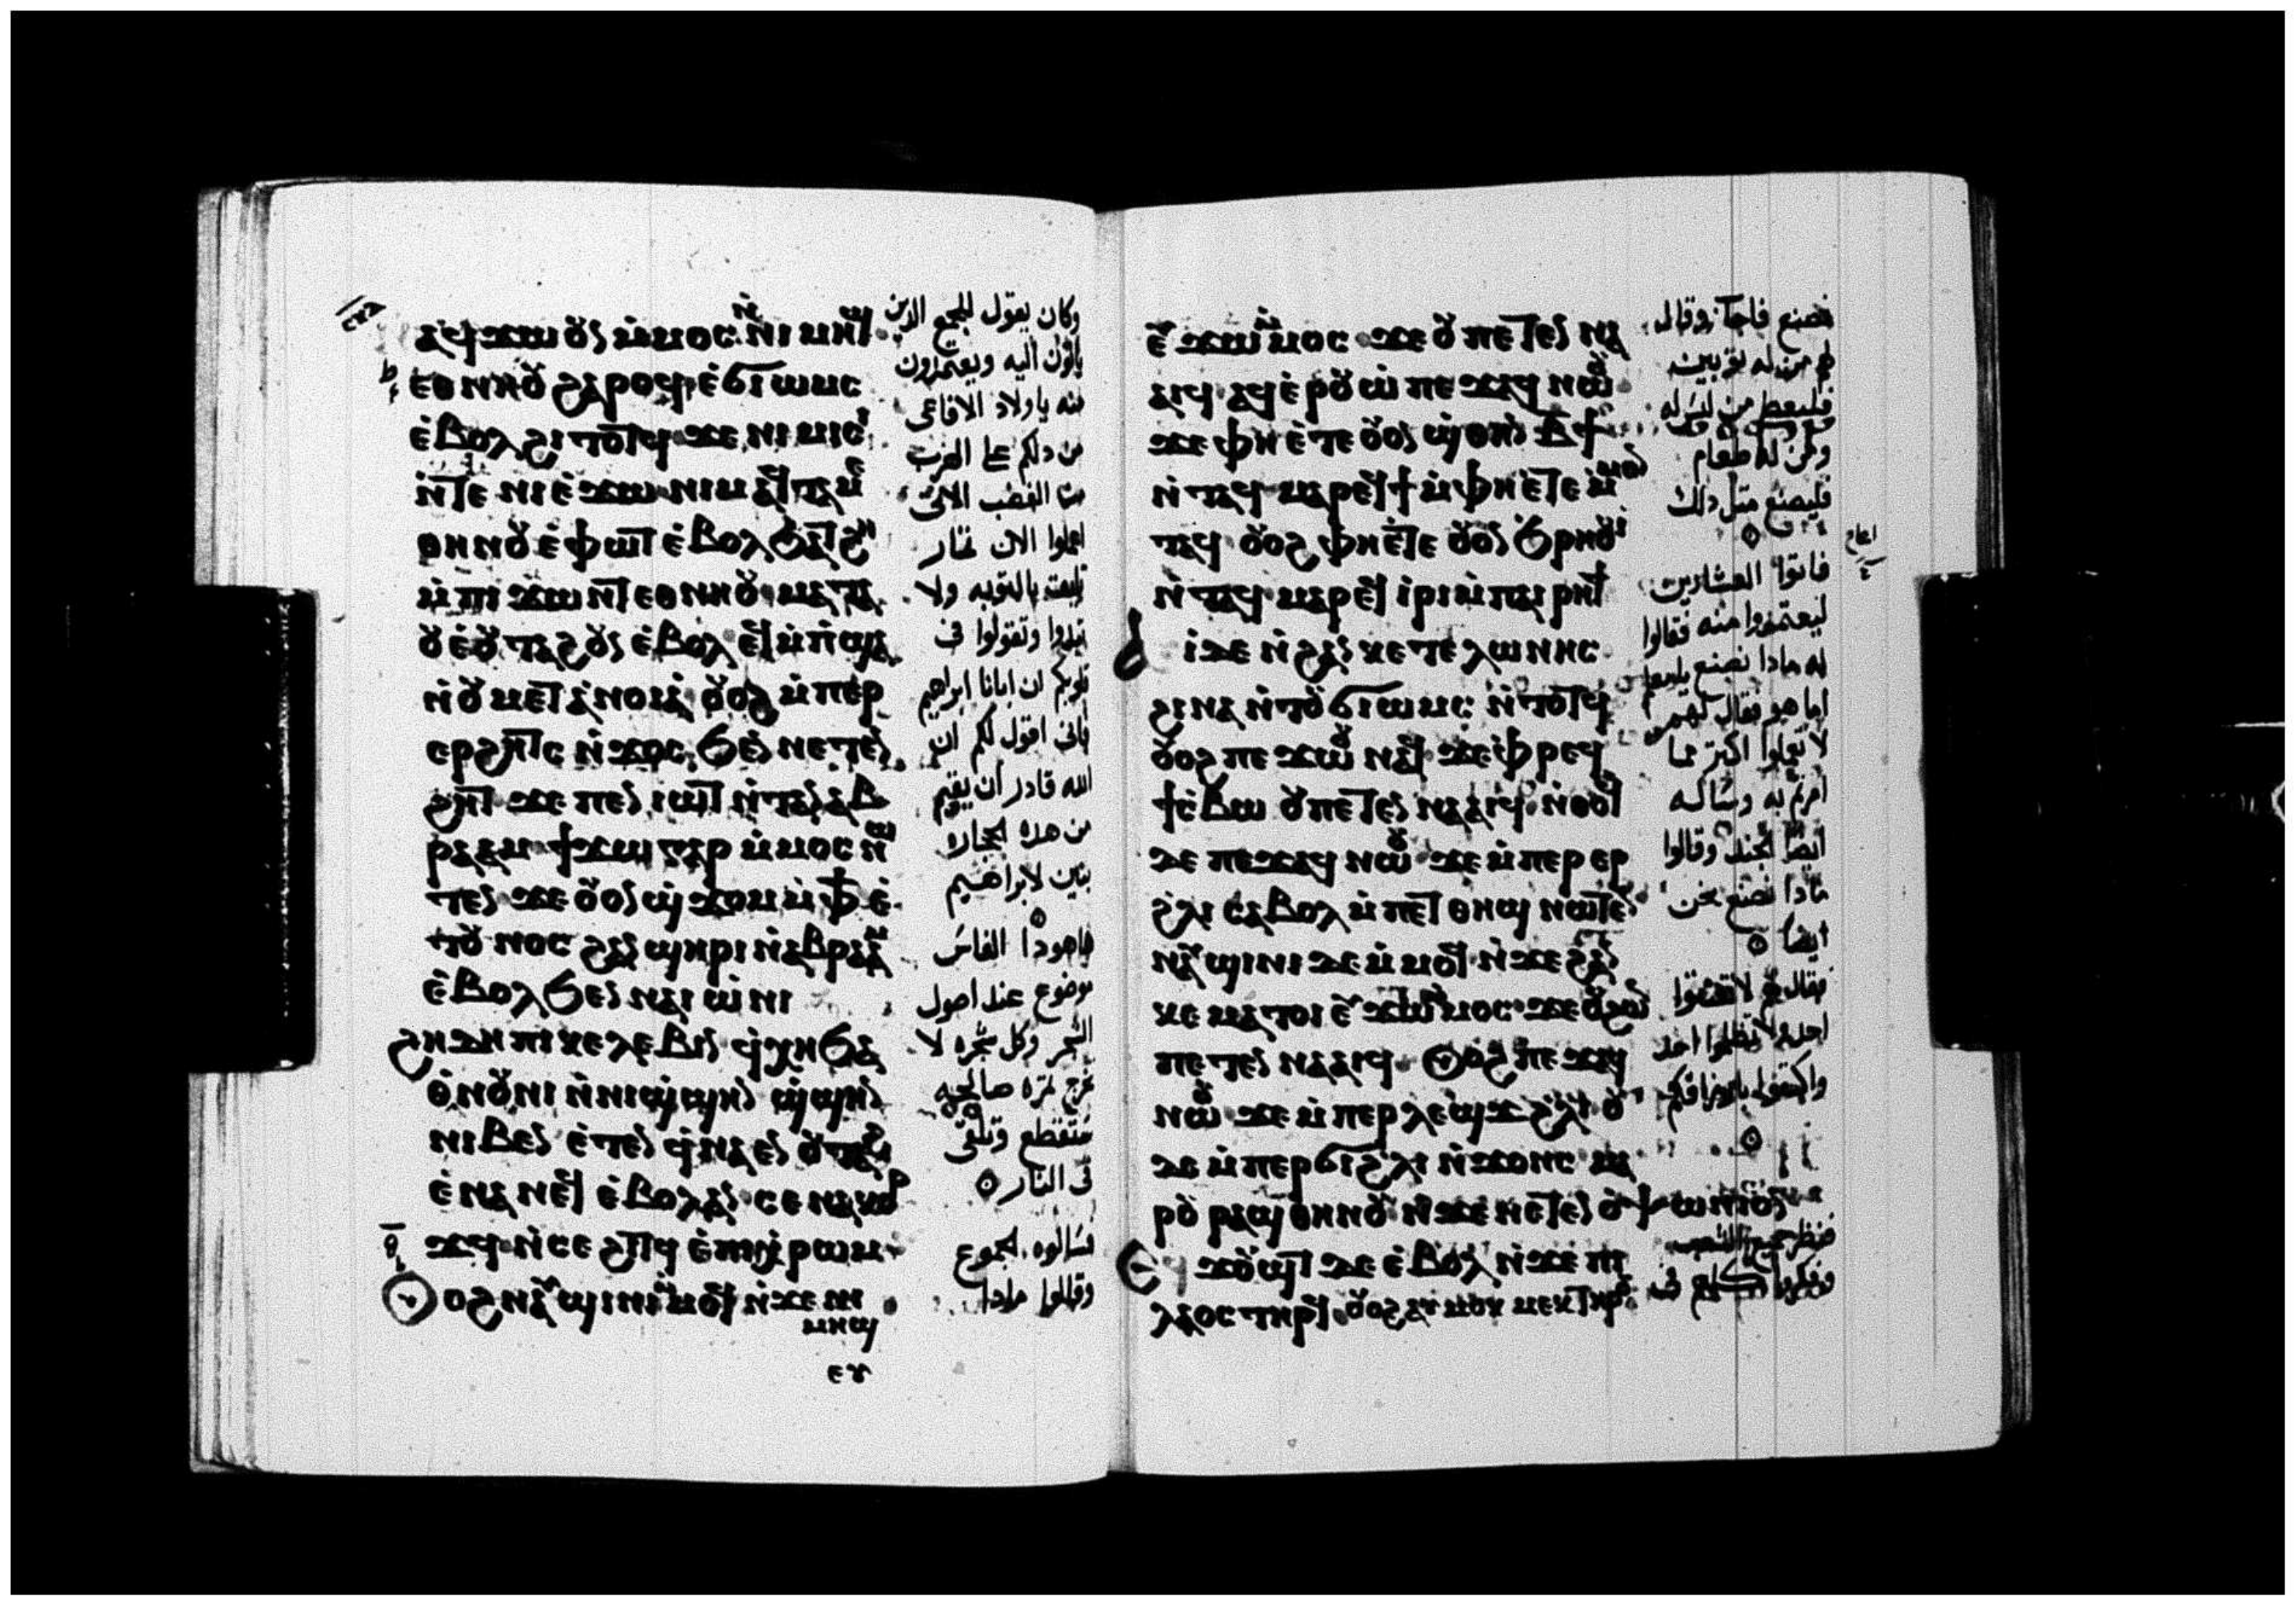 ⲛⲁϥϫⲱ ⲟⲩⲛ ⲙ̇ⲙⲟⲥ ⲛ̇ⲛⲓⲙⲏϣ
ⲉⲑⲛⲏⲟⲩ ϩⲁⲣⲟϥ ⲉ̇ϭⲓⲱⲙⲥ
ⲉ̇ⲃⲟⲗ ϩⲓⲧⲟⲧϥ ϫⲉ ⲛⲓⲙⲓⲥⲓ
ⲛ̇ⲧⲉ ⲛⲓⲉ̇ϫⲱ ⲛⲓⲙ ⲁϥⲧⲁⲙⲉ
ⲑⲏⲛⲟⲩ ⲉ̇ⲫⲱⲧ ⲉ̇ⲃⲟⲗ ϧⲁⲧϩⲏ
ⲙ̇ⲡⲓϫⲱⲛⲧ ⲉⲑⲛⲏⲟⲩ ⲙⲁⲧⲁ
ⲟⲩⲉ̇ ⲟⲩⲧⲁϩ ⲟⲩⲛ ⲉ̇ⲃⲟⲗ ⲉϥⲙ̇ⲡϣⲁ
ⲛ̇ⲟⲩⲙⲉⲧⲁⲛⲟⲓⲁ ⲟⲩⲟϩ ⲙ̇ⲡⲉⲣ
ⲉⲣϩⲏⲧⲥ ⲛ̇ϫⲟⲥ ϧⲉⲛ ⲛⲉⲧⲉⲛ
ϩⲏⲧ ϫⲉ ⲡⲉⲛⲓⲱⲧ ⲛ̇ⲧⲁⲛ ⲁⲃ
ⲣⲁⲁⲙ ϯϫⲱ ⲅⲁⲣ ⲙ̇ⲙⲟⲥ ⲛⲱ
ⲧⲉⲛ ϫⲉ ⲟⲩⲟⲛ ϣϫⲟⲙ ⲙ̇ⲫϯ ⲉ̇
ⲧⲟⲩⲛⲟⲥ ϩⲁⲛϣⲏⲣⲓ ⲛ̇ⲁⲃⲣⲁⲁⲙ
ⲉ̇ⲃⲟⲗ ϧⲉⲛ ⲛⲁⲓⲱ̇ⲛⲓ
ϩⲏⲇⲏ ⲡⲓⲕⲉⲗⲉⲃⲓⲛ ϥ̇ⲭⲏ ϧⲁ
ⲑ̇ⲛⲟⲩⲛⲓ ⲛ̇ⲛⲓϣ̇ϣⲏⲛ ϣ̇ϣⲏⲛ
ⲛⲓⲃⲉⲛ ⲉ̇ⲧⲉⲛ ϥ̇ⲛⲁⲉⲛ ⲟⲩⲧⲁϩ
ⲉ̇ⲛⲁⲛⲉϥ ⲉ̇ⲃⲟⲗ ⲁⲛ ⲥⲉⲛⲁⲕⲟⲣ
ϫϥ ⲛ̇ⲥⲉϩⲓⲧϥ ⲉ̇ⲡⲓⲭ̇ⲣⲱⲙ
ⲟⲩⲟϩ ⲛⲁⲩϣⲓⲛⲓ ⲙ̇ⲙⲟϥ ⲛ̇ϫⲉ ⲛⲓ
ⲙⲏϣ
وكان يقول للجمع الذين
ياتون اليه ويعتمدون
منه ياولاد الافاعى
من دلكم على الهرب
من الغضب الاتى
اعملوا الان ثمار
تليق بالتوبه ولا
تبدوا وتقولوا فى
قلوبكم ان ابانا ابراهيم
فانى اقول لكم ان
الله قادر ان يقيم
من هذه الحجاره
بنين لابراهيم
هاهوذا الفاس
موضوع عند اصول
الشجر وكل شجره لا
تخرج ثمره صالحه
ستقطع وتلقى
فى النار
فسالوه الجموع
وقالوا ماذا
ⲉⲩϫⲱ ⲙ̇ⲙⲟⲥ ϫⲉ ⲟⲩ ⲡⲉⲧⲉⲛⲛⲁ
ⲁⲓϥ ⲁϥⲉ̇ⲣⲟⲩⲱ̇ ⲡⲉϫⲁϥ ⲛⲱⲟⲩ
ϫⲉ ⲫⲏ ⲉ̇ⲧⲉ ⲟⲩⲟⲛ ϣⲑⲏⲛ ⲃϯ
ⲛ̇ⲧⲁϥ ⲙⲁⲣⲉϥϯ ⲙ̇ⲫⲏ ⲉ̇ⲧⲉ ⲙ̇ⲙⲟⲛ
ⲧⲁϥ ⲟⲩⲟϩ ⲫⲏ ⲉ̇ⲧⲉ ⲟⲩⲟⲛ ϧ̇ⲣⲏⲟⲩⲓ
ⲛ̇ⲧⲁϥ ⲙⲁⲣⲉϥⲓⲣⲓ ⲙ̇ⲡⲁⲓⲣⲏϯ
ⲁⲩⲓ̇ ⲇⲉ ⲛ̇ϩⲁⲛⲕⲉⲧⲉⲗⲱⲛⲏⲥ
ϩⲓⲛⲁ ⲛ̇ⲧⲟⲩϭⲓⲱⲙⲥ ⲛ̇ⲧⲟⲧϥ
ⲟⲩⲟϩ ⲡⲉϫⲱⲟⲩ ⲛⲁϥ ϫⲉ ⲫⲣⲉϥ
ϯⲥ̇ⲃⲱ ⲟⲩ ⲡⲉⲧⲉⲛⲛⲁⲁⲓϥ ⲛ̇ⲑⲟϥ
ⲇⲉ ⲡⲉϫⲁϥ ⲛⲱⲟⲩ ϫⲉ ⲙ̇ⲡⲉⲣⲉⲣ
ϩ̇ⲗⲓ ⲥⲁⲃⲟⲗ ⲙ̇ⲡⲉⲧⲑⲏϣ ⲛⲱⲧⲉⲛ
ⲛⲁⲩϣⲓⲛⲓ ⲇⲉ ⲙ̇ⲙⲟϥ ⲛ̇ϫⲉ ϩⲁⲛ
ⲕⲉⲙⲁⲧⲟⲓ ⲉⲩϫⲱ ⲙ̇ⲙⲟⲥ ϫⲉ ⲟⲩ ϩⲱⲛ
ⲡⲉⲧⲉⲛⲛⲁⲁⲓϥ ⲟⲩⲟϩ ⲡⲉϫⲁϥ
ⲛⲱⲟⲩ ϫⲉ ⲙ̇ⲡⲉⲣⲗⲉϣϫ ϩ̇ⲗⲓ ⲟⲩ
ⲇⲉ ⲙ̇ⲡⲉⲣϭⲓ ϩ̇ⲗⲓ ⲛ̇ϫⲟⲛⲥ ⲙⲁ
ⲣⲟⲩ ⲣⲁϣ ⲑⲏⲛⲟⲩ ⲛ̇ϫⲉ ⲛⲉⲧⲉⲛⲟ̇ⲯⲱⲛⲓⲟⲛ
ⲉϥϫⲟⲩϣⲧ ⲇⲉ ⲉ̇ⲃⲟⲗ ⲛ̇ϫⲉ ⲡⲓ
ⲗⲁⲟⲥ ⲧⲏⲣϥ ⲟⲩⲟϩ ⲛⲁⲩⲙⲟⲕⲙⲉⲕ ⲧⲏⲣⲟⲩ
نصنع فاجاب وقال
لهم من له ثوبين
فليعط من ليس له
ومن له طعام
فليصنع مثل ذلك
فاتوا العشارين
ليعتمدوا منه فقالوا
له ماذا نصنع يامعلم
اما هو فقال لهم
لا تعملوا اكثر مما
امرتم به وساله
ايضا الجند وقالوا
ماذا نصنع نحن
ايضا
فقال لهم لا تعنتوا
احد ولا تظلموا احد
واكتفوا بارزاقكم
فنظر جميع الشعب
وفكروا كلهم فى